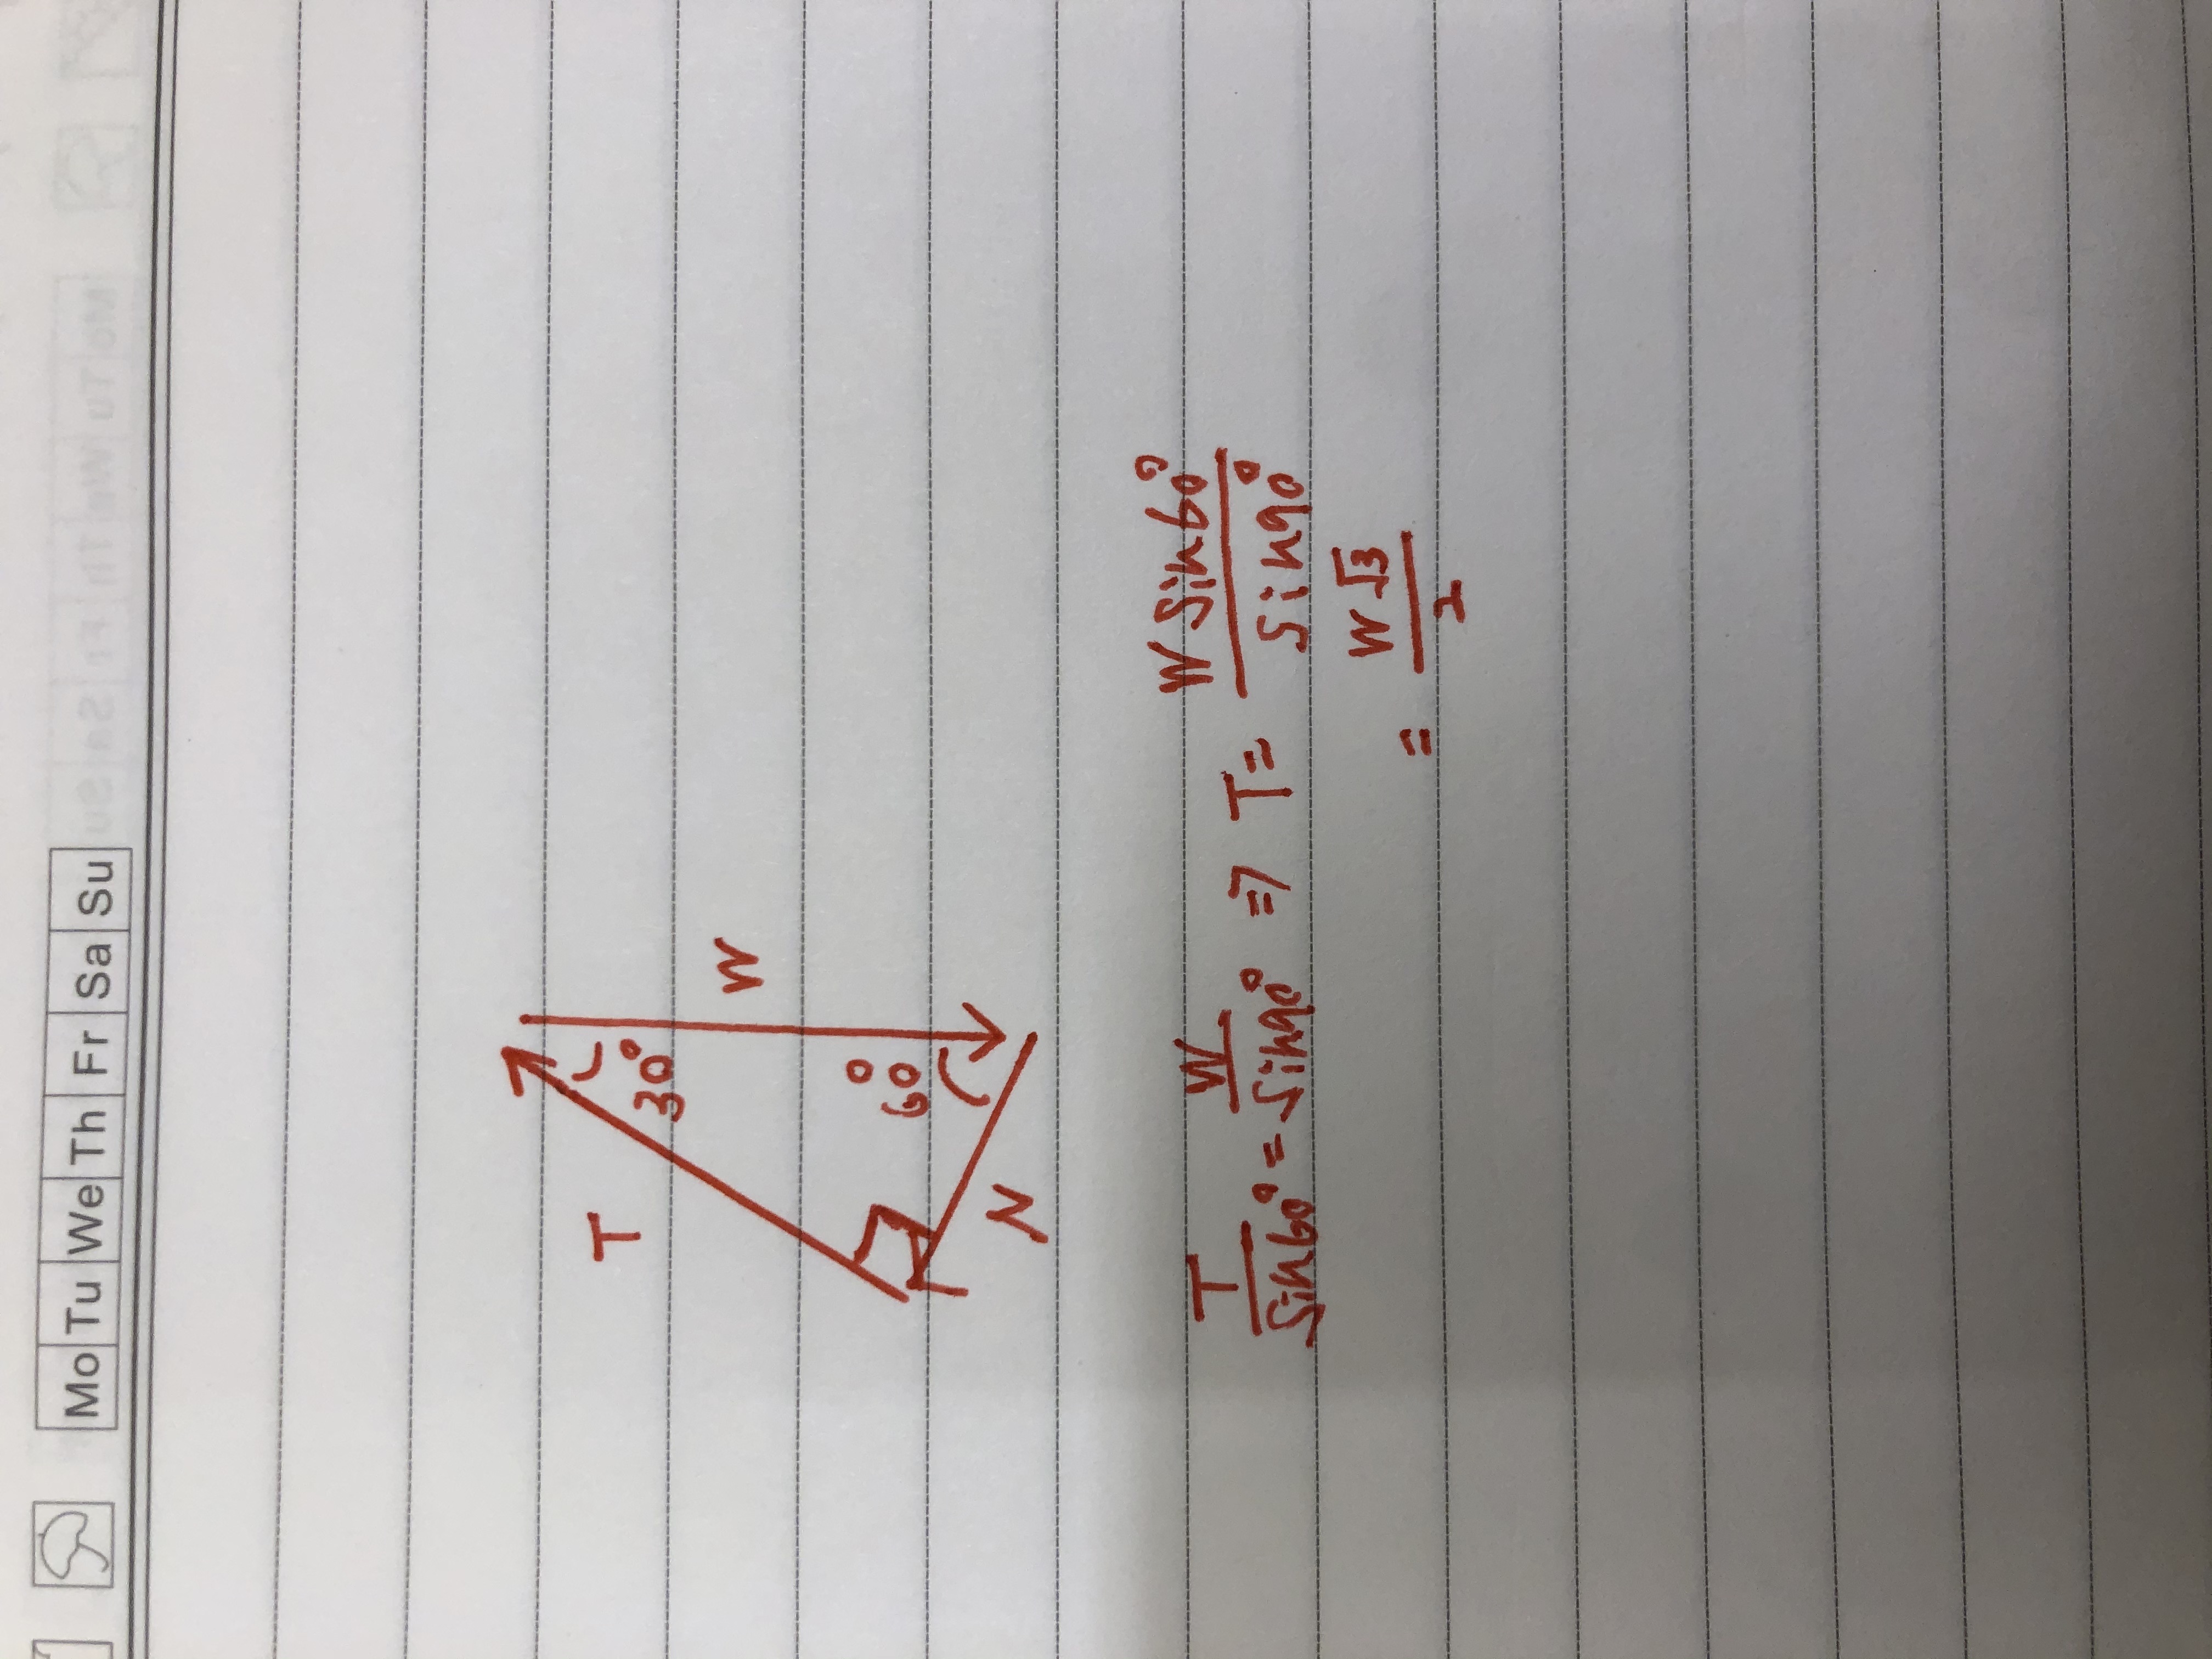 Mo Tu We Th Fr Sa Su
T
30°
W
60°
N
T/Sin60° = W/Sin90° => T = W Sin60°/Sin90°
= W√3/2